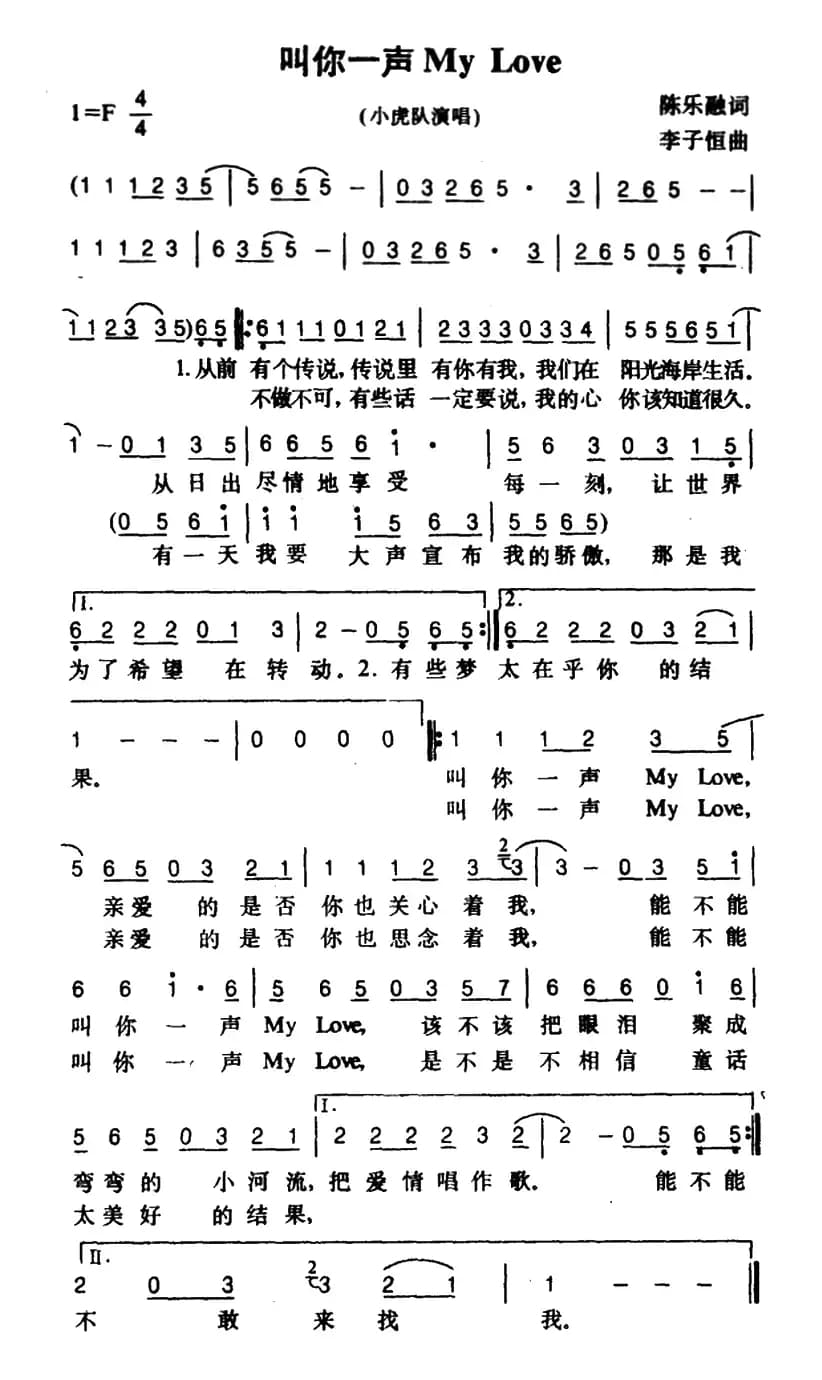 叫你一声My Love
1=F 4/4
(小虎队演唱)
陈乐融词
李子恒曲
(1 1 1 2 3 5 | 5 6 5 5 - | 0 3 2 6 5 · 3 | 2 6 5 - - |
1 1 1 2 3 | 6 3 5 5 - | 0 3 2 6 5 · 3 | 2 6 5 0 5 6 1 |
1 1 2 3 3 5) 6 5 ‖: 6 1 1 1 0 1 2 1 | 2 3 3 3 0 3 3 4 | 5 5 5 6 5 1 |
1.从前 有个传说,传说里 有你有我,我们在 阳光海岸生活。
不做不可,有些话 一定要说,我的心 你该知道很久。
1 - 0 1 3 5 | 6 6 5 6 i · | 5 6 3 0 3 1 5 |
从日出尽情地享受 每一刻,让世界
(0 5 6 i | i i i 5 6 3 | 5 5 6 5)
有一天我要 大声宣布我的骄傲,那是我
1. 2.
6 2 2 2 0 1 3 | 2 - 0 5 6 5 :‖ 6 2 2 2 0 3 2 1 |
为了希望 在转动。2.有些梦 太在乎你 的结
1 - - - | 0 0 0 0 ‖: 1 1 1 2 3 5 |
果。 叫你一声 My Love,
叫你一声 My Love,
5 6 5 0 3 2 1 | 1 1 1 2 3 2 3 | 3 - 0 3 5 i |
亲爱 的是否 你也关心着我, 能不能
亲爱 的是否 你也思念着我, 能不能
6 6 i · 6 | 5 6 5 0 3 5 7 | 6 6 6 0 i 6 |
叫你一声My Love, 该不该把眼泪 聚成
叫你一声My Love, 是不是不相信 童话
I.
5 6 5 0 3 2 1 | 2 2 2 2 3 2 | 2 - 0 5 6 5 :‖
弯弯的 小河流,把爱情唱作歌。 能不能
太美好 的结果,
II.
2 0 3 2 3 2 1 | 1 - - - ‖
不 敢来找 我。